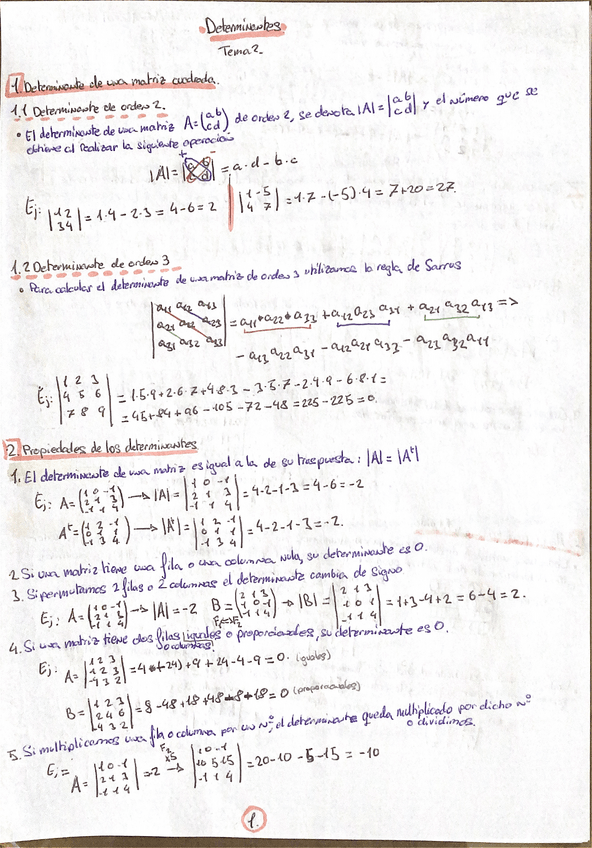 Determinantes
Tema 2.
1. Determinante de una matriz cuadrada.
1.1 Determinante de orden 2.
• El determinante de una matriz A=(a b / c d) de orden 2, se denota |A| = |a b / c d| y el número que se
obtiene al realizar la siguiente operación
|A| = |a b / c d| = a·d - b·c
Ej: |1 2 / 3 4| = 1·4 - 2·3 = 4-6 = 2 | |1 -5 / 4 7| = 1·7 - (-5)·4 = 7+20 = 27.
1.2 Determinante de orden 3
• Para calcular el determinante de una matriz de orden 3 utilizamos la regla de Sarrus
|a11 a12 a13 / a21 a22 a23 / a31 a32 a33| = a11*a22*a33 + a12 a23 a31 + a21 a32 a13 =>
- a13 a22 a31 - a12 a21 a33 - a23 a32 a11
Ej: |1 2 3 / 4 5 6 / 7 8 9| = 1·5·9+2·6·7+4·8·3 - 3·5·7 - 2·4·9 - 6·8·1 =
= 45+84+96-105-72-48 = 225-225 = 0.
2. Propiedades de los determinantes
1. El determinante de una matriz es igual a la de su traspuesta: |A| = |Aᵗ|
Ej: A=(1 0 -1 / 2 1 3 / -1 1 4) → |A| = |1 0 -1 / 2 1 3 / -1 1 4| = 4-2-1-3 = 4-6 = -2
Aᵗ=(1 2 -1 / 0 1 1 / -1 3 4) → |Aᵗ| = |1 2 -1 / 0 1 1 / -1 3 4| = 4-2-1-3 = -2.
2. Si una matriz tiene una fila o una columna nula, su determinante es 0.
3. Si permutamos 2 filas o 2 columnas el determinante cambia de signo
Ej: A=(1 0 -1 / 2 1 3 / -1 1 4) → |A| = -2 B=(2 1 3 / 1 0 -1 / -1 1 4) F1↔F2 → |B| = |2 1 3 / 1 0 -1 / -1 1 4| = 1+3-4+2 = 6-4 = 2.
4. Si una matriz tiene dos filas iguales o proporcionales, su determinante es 0.
o columnas
Ej: A= |1 2 3 / 1 2 3 / -4 3 2| = 4+(-24)+9+24-4-9 = 0. (iguales)
B= |1 2 3 / 2 4 6 / -4 3 2| = 8-48+18+48-8-18 = 0 (proporcionales)
5. Si multiplicamos una fila o columna por un nº, el determinante queda multiplicado por dicho nº
o dividimos.
Ej= A= |1 0 -1 / 2 1 3 / -1 1 4| = -2 F2 x5 → |1 0 -1 / 10 5 15 / -1 1 4| = 20-10-5-15 = -10
1.